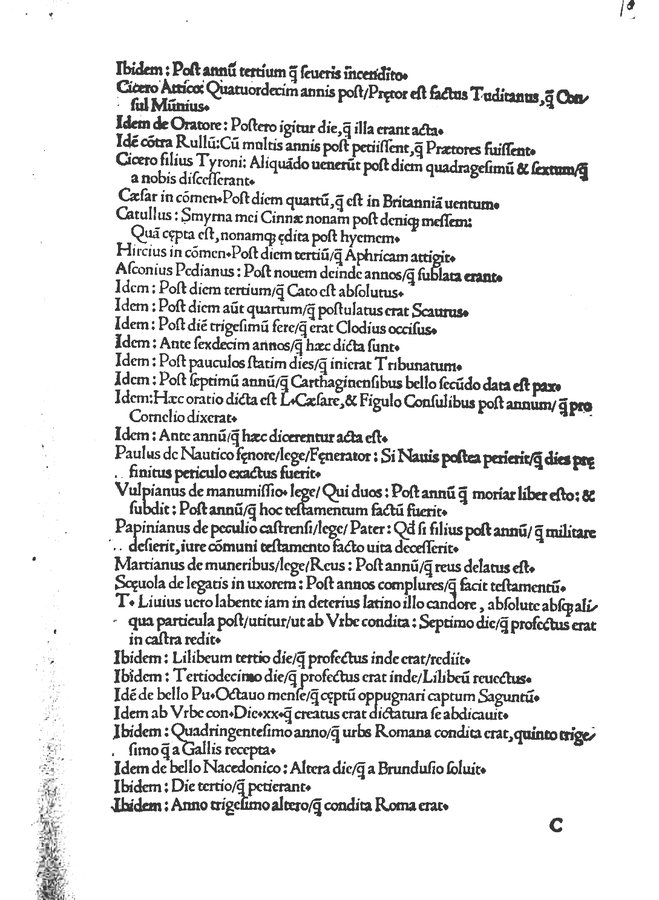 Ibidem : Poſt annũ tertium q̃ ſeueris incendito.
Cicero Attico: Quatuordecim annis poſt/Prętor eſt factus Tuditanus,q̃ Con/
ſul Mũmius.
Idem de Oratore : Poſtero igitur die,q̃ illa erant acta.
Idẽ cõtra Rullũ:Cũ multis annis poſt petiiſſent,q̃ Prætores fuiſſent.
Cicero filius Tyroni: Aliquãdo uenerũt poſt diem quadrageſimũ & ſextum/q̃
a nobis diſceſſerant.
Cæſar in cõmen.Poſt diem quartũ,q̃ eſt in Britanniã uentum.
Catullus : Smyrna mei Cinnæ nonam poſt deniqꝫ meſſem:
Quã cępta eſt, nonamqꝫ ędita poſt hyemem.
Hircius in cõmen.Poſt diem tertiũ/q̃ Aphricam attigit.
Aſconius Pedianus : Poſt nouem deinde annos/q̃ ſublata erant.
Idem : Poſt diem tertium/q̃ Cato eſt abſolutus.
Idem : Poſt diem aũt quartum/q̃ poſtulatus erat Scaurus.
Idem : Poſt diẽ trigeſimũ fere/q̃ erat Clodius occiſus.
Idem : Ante ſexdecim annos/q̃ hæc dicta ſunt.
Idem : Poſt pauculos ſtatim dies/q̃ inierat Tribunatum.
Idem : Poſt ſeptimũ annũ/q̃ Carthaginenſibus bello ſecũdo data eſt pax.
Idem:Hæc oratio dicta eſt L.Cæſare,& Figulo Conſulibus poſt annum/q̃ pro
Cornelio dixerat.
Idem : Ante annũ/q̃ hæc dicerentur acta eſt.
Paulus de Nautico fęnore/lege/Fęnerator : Si Nauis poſtea perierit/q̃ dies prę
finitus periculo exactus fuerit.
Vulpianus de manumiſſio. lege/ Qui duos : Poſt annũ q̃ moriar liber eſto: &
ſubdit : Poſt annũ/q̃ hoc teſtamentum factũ fuerit.
Papinianus de peculio caſtrenſi/lege/ Pater : Qd ſi filius poſt annũ/ q̃ militare
deſierit, iure cõmuni teſtamento facto uita deceſſerit.
Martianus de muneribus/lege/Reus : Poſt annũ/q̃ reus delatus eſt.
Scęuola de legatis in uxorem : Poſt annos complures/q̃ facit teſtamentũ.
T. Liuius uero labente iam in deterius latino illo candore , abſolute abſqꝫ ali/
qua particula poſt/utitur/ut ab Vrbe condita : Septimo die/q̃ profectus erat
in caſtra redit.
Ibidem : Lilibeum tertio die/q̃ profectus inde erat/rediit.
Ibidem : Tertiodecimo die/q̃ profectus erat inde/Lilibeũ reuectus.
Idẽ de bello Pu.Octauo menſe/q̃ cęptũ oppugnari captum Saguntũ.
Idem ab Vrbe con.Die.xx.q̃ creatus erat dictatura ſe abdicauit.
Ibidem : Quadringenteſimo anno/q̃ urbs Romana condita erat,quinto trige/
ſimo q̃ a Gallis recepta.
Idem de bello Nacedonico : Altera die/q̃ a Brunduſio ſoluit.
Ibidem : Die tertio/q̃ petierant.
Ibidem : Anno trigeſimo altero/q̃ condita Roma erat.
C